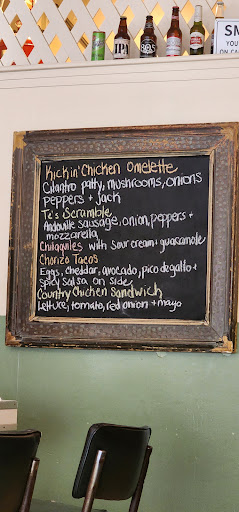 Kickin' Chicken Omelette
Cilantro patty, mushrooms, onions
peppers + Jack
TJ's Scramble
Andouille sausage, onion, peppers +
mozzarella
Chilaquiles with sour cream + guacamole
Chorizo Tacos
Eggs, cheddar, avocado, pico de gallo +
spicy salsa on side
Country Chicken Sandwich
Lettuce, tomato, red onion + mayo
IPA
805
SM
YOU
ON CA